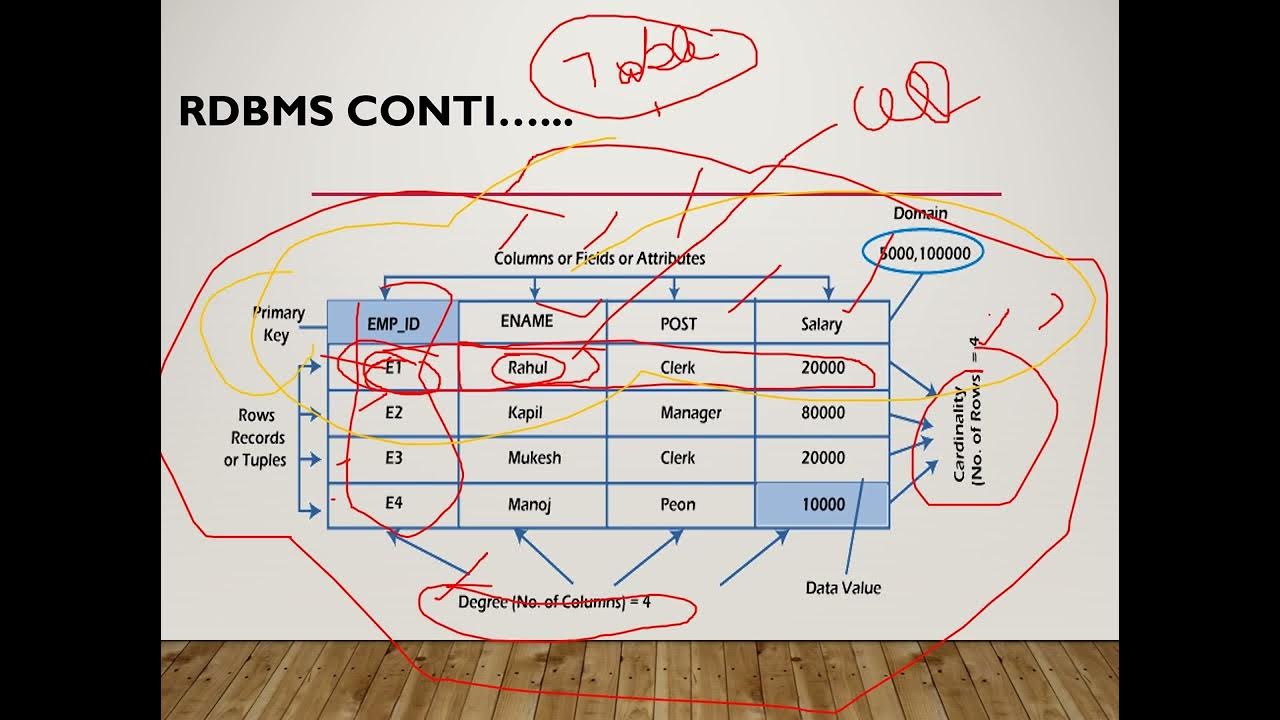 Table
cell
RDBMS CONTI…...
Domain
5000,100000
Columns or Fields or Attributes
Primary
Key
EMP_ID ENAME POST Salary
E1 Rahul Clerk 20000
E2 Kapil Manager 80000
E3 Mukesh Clerk 20000
E4 Manoj Peon 10000
Rows
Records
or Tuples
Cardinality
(No. of Rows) = 4
Degree (No. of Columns) = 4
Data Value